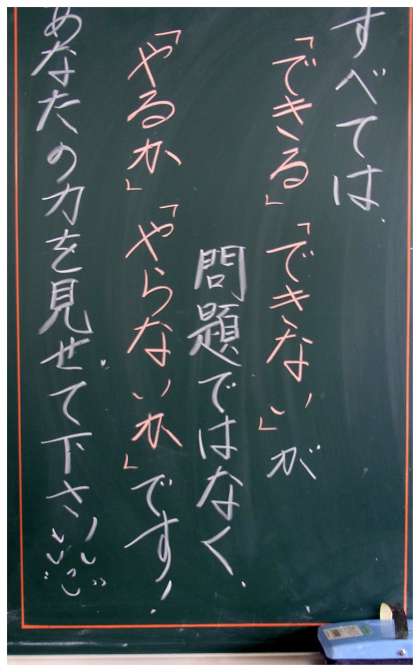 すべては、
「できる」「できない」が
問題ではなく、
「やるか」「やらないか」です!
あなたの力を見せて下さい